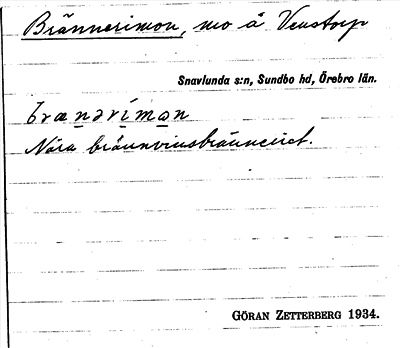 Brännerimon, mo å Venstorp
Snavlunda s:n, Sundbo hd, Örebro län.
brænərimɷn
Nära brännvinsbränneriet.
GÖRAN ZETTERBERG 1934.